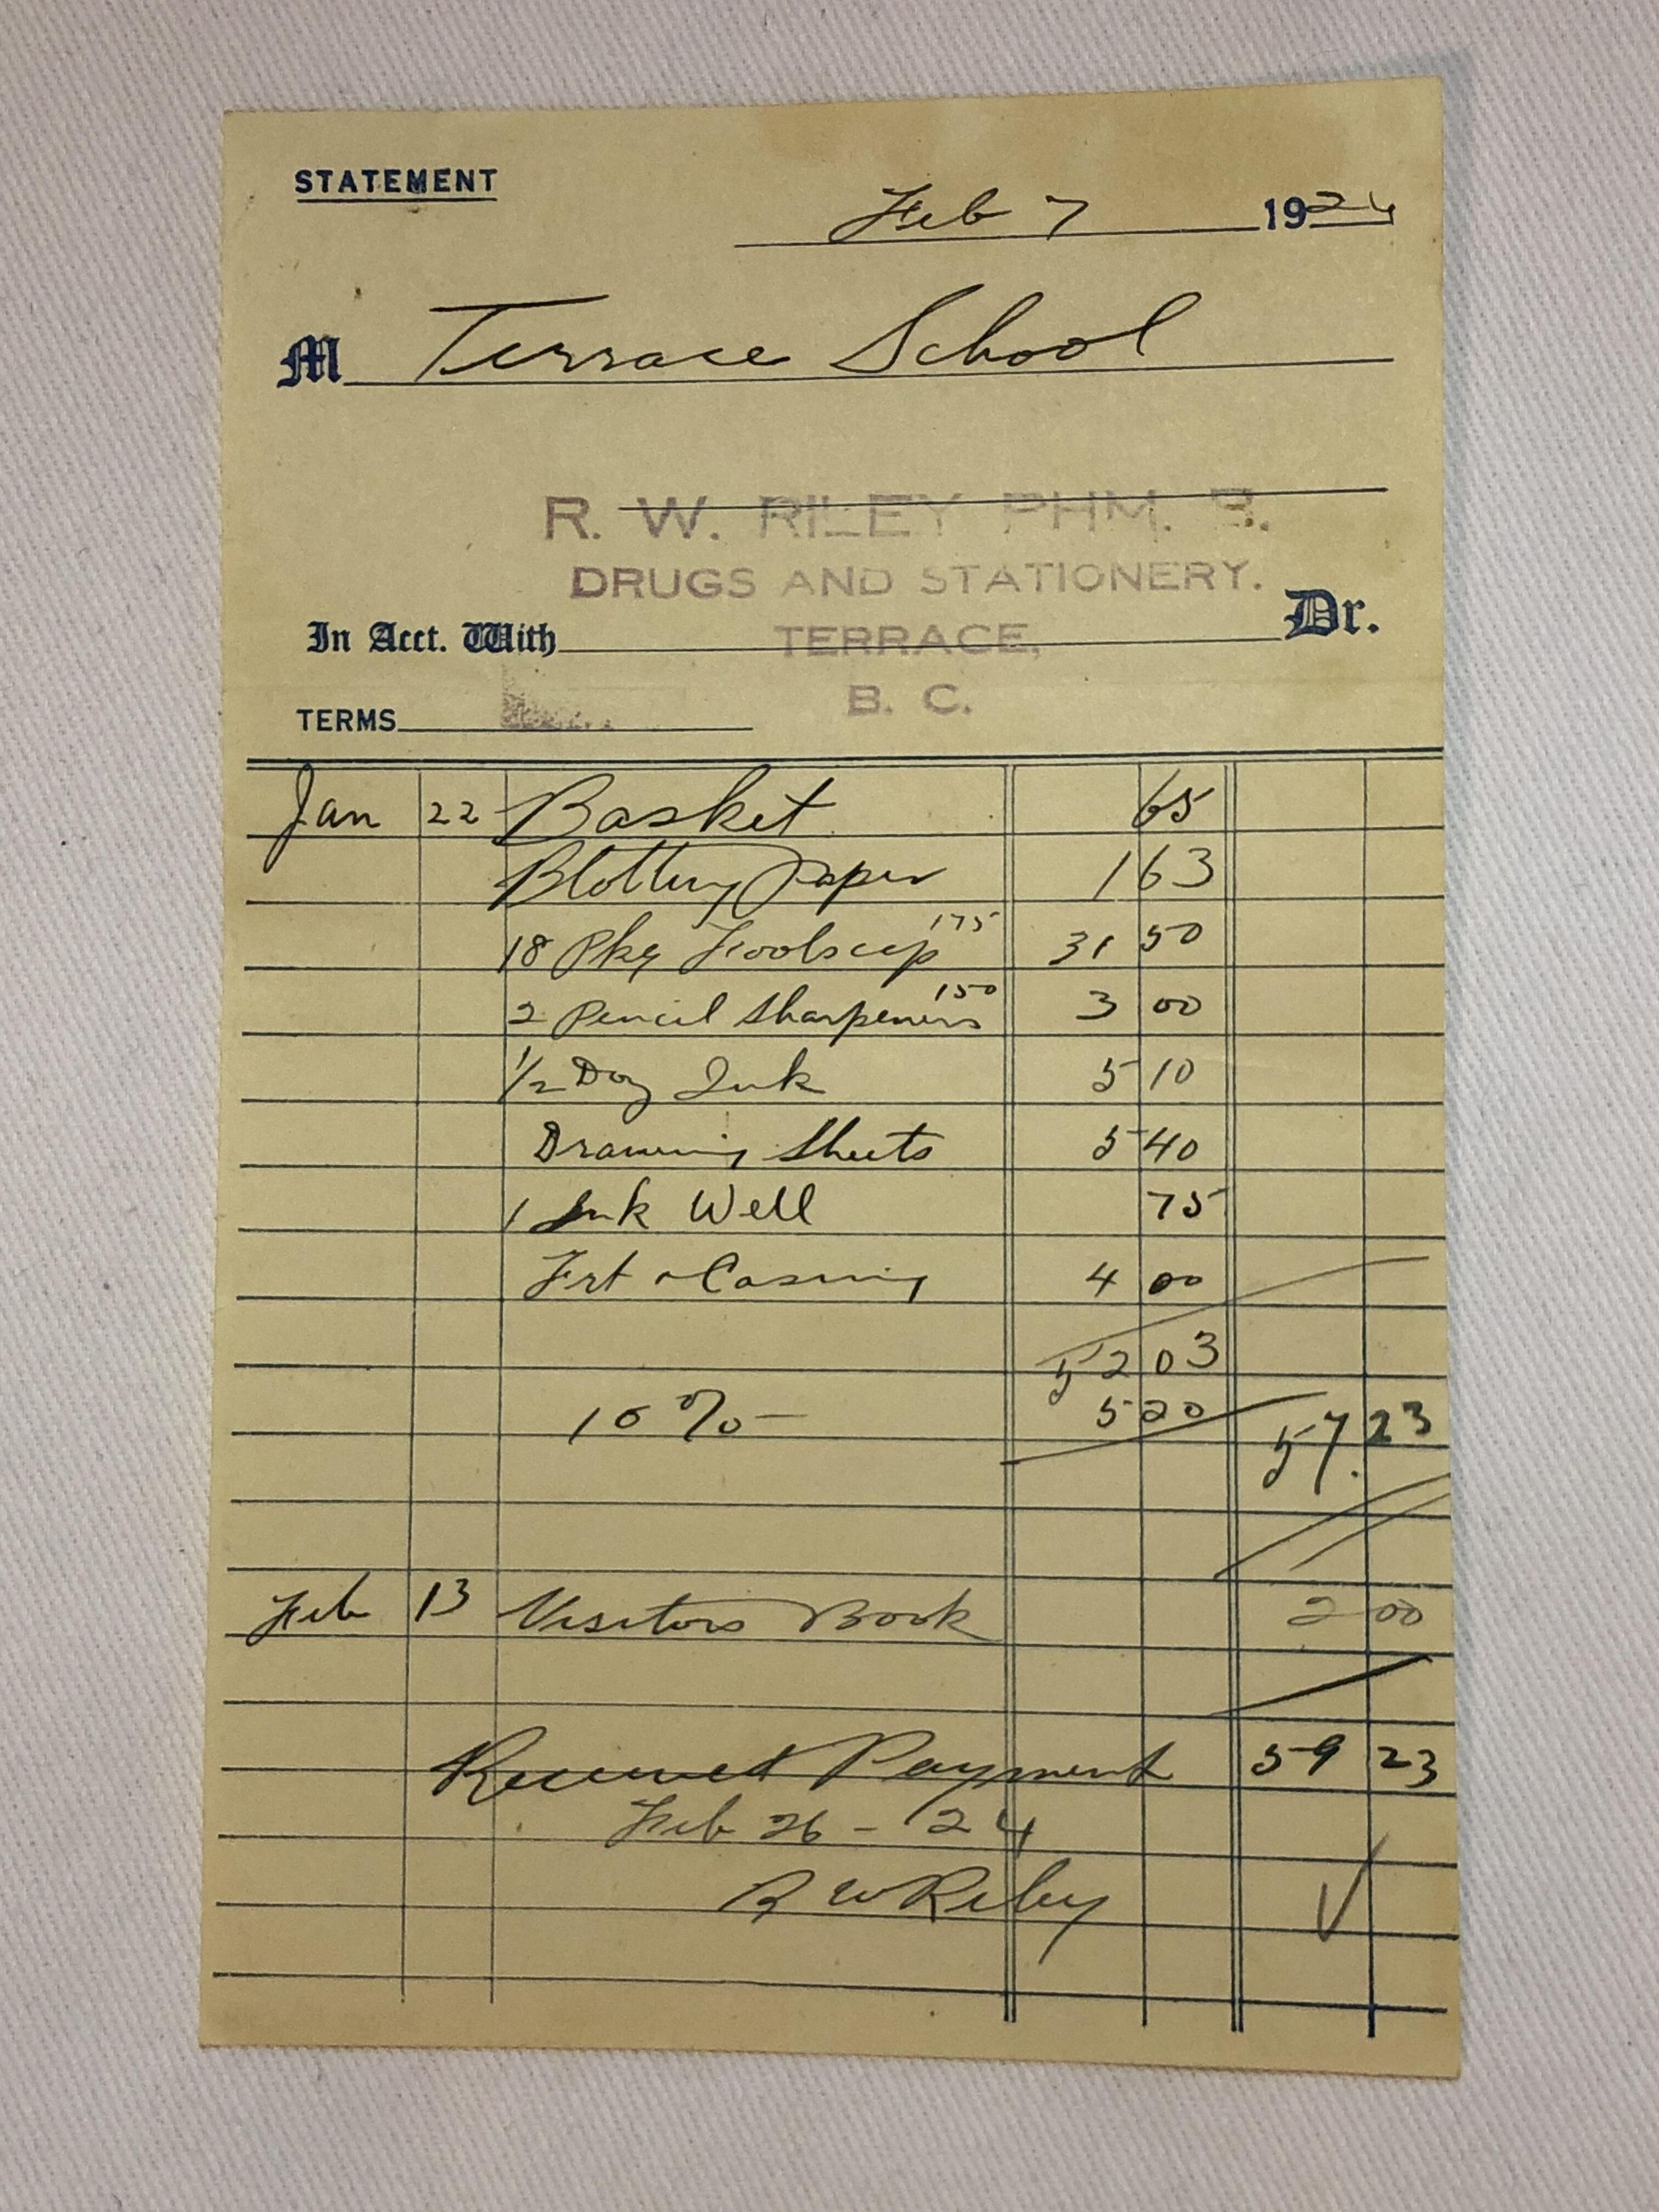 STATEMENT
Feb 7 1924
M Terrace School
R. W. RILEY PHM. B.
DRUGS AND STATIONERY.
In Acct. With Dr.
TERRACE,
B. C.
TERMS
Jan 22 Basket 65
Blotting Paper 1 63
18 Pkg Foolscap 175 31 50
2 Pencil Sharpeners 150 3 00
1/2 Doz Ink 5 10
Drawing Sheets 5 40
1 Ink Well 75
Frt & Casing 4 00
52 03
10 % 5 20 57.23
Feb 13 Visitors Book 2 00
Received Payment 59 23
Feb 26 - 24
R W Riley